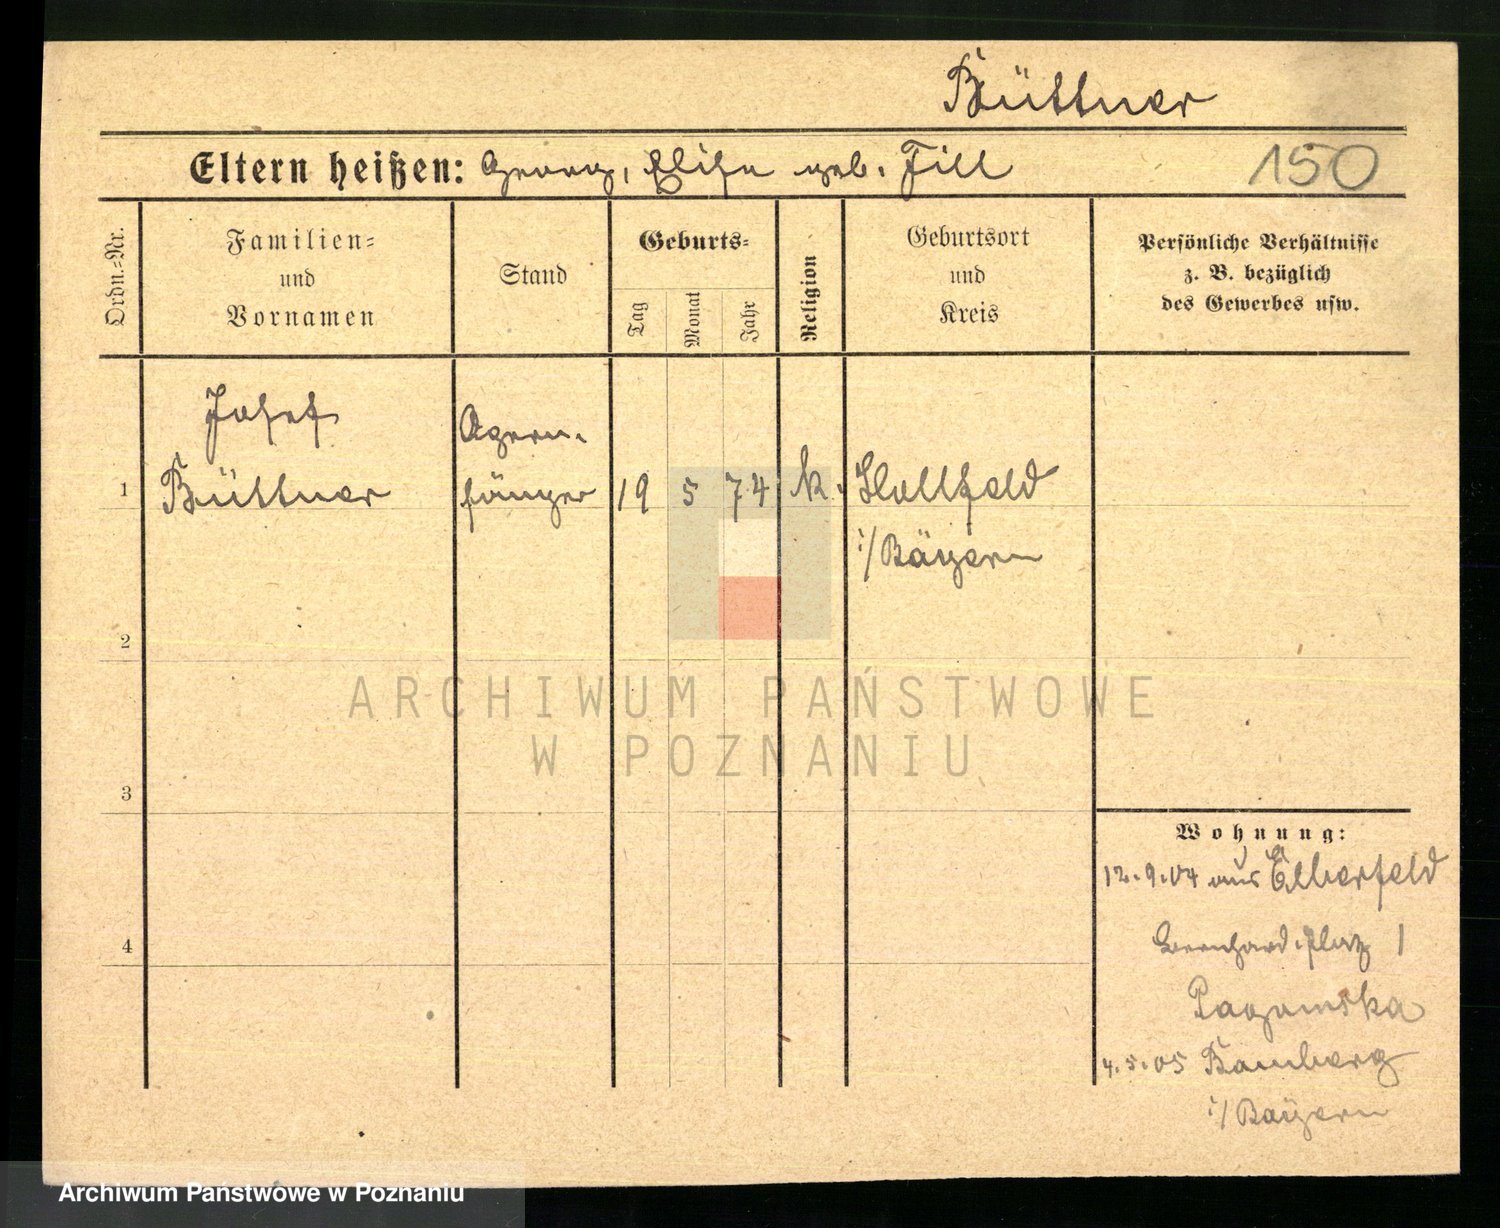 Büttner
Eltern heißen: Georg, Elise geb. Fill
150
Ordn.-Nr.
Familien-
und
Vornamen
Stand
Geburts-
Tag
Monat
Jahr
Religion
Geburtsort
und
Kreis
Persönliche Verhältnisse
z. B. bezüglich
des Gewerbes usw.
Josef
Opern-
1 Büttner sänger 19 5 74 k. Hollfeld
i/Bayern
2
ARCHIWUM PAŃSTWOWE
W POZNANIU
3
Wohnung:
12.9.04 aus Elberfeld
4
Bernhard. platz 1
4.5.05 Bamberg
i/Bayern
Archiwum Państwowe w Poznaniu